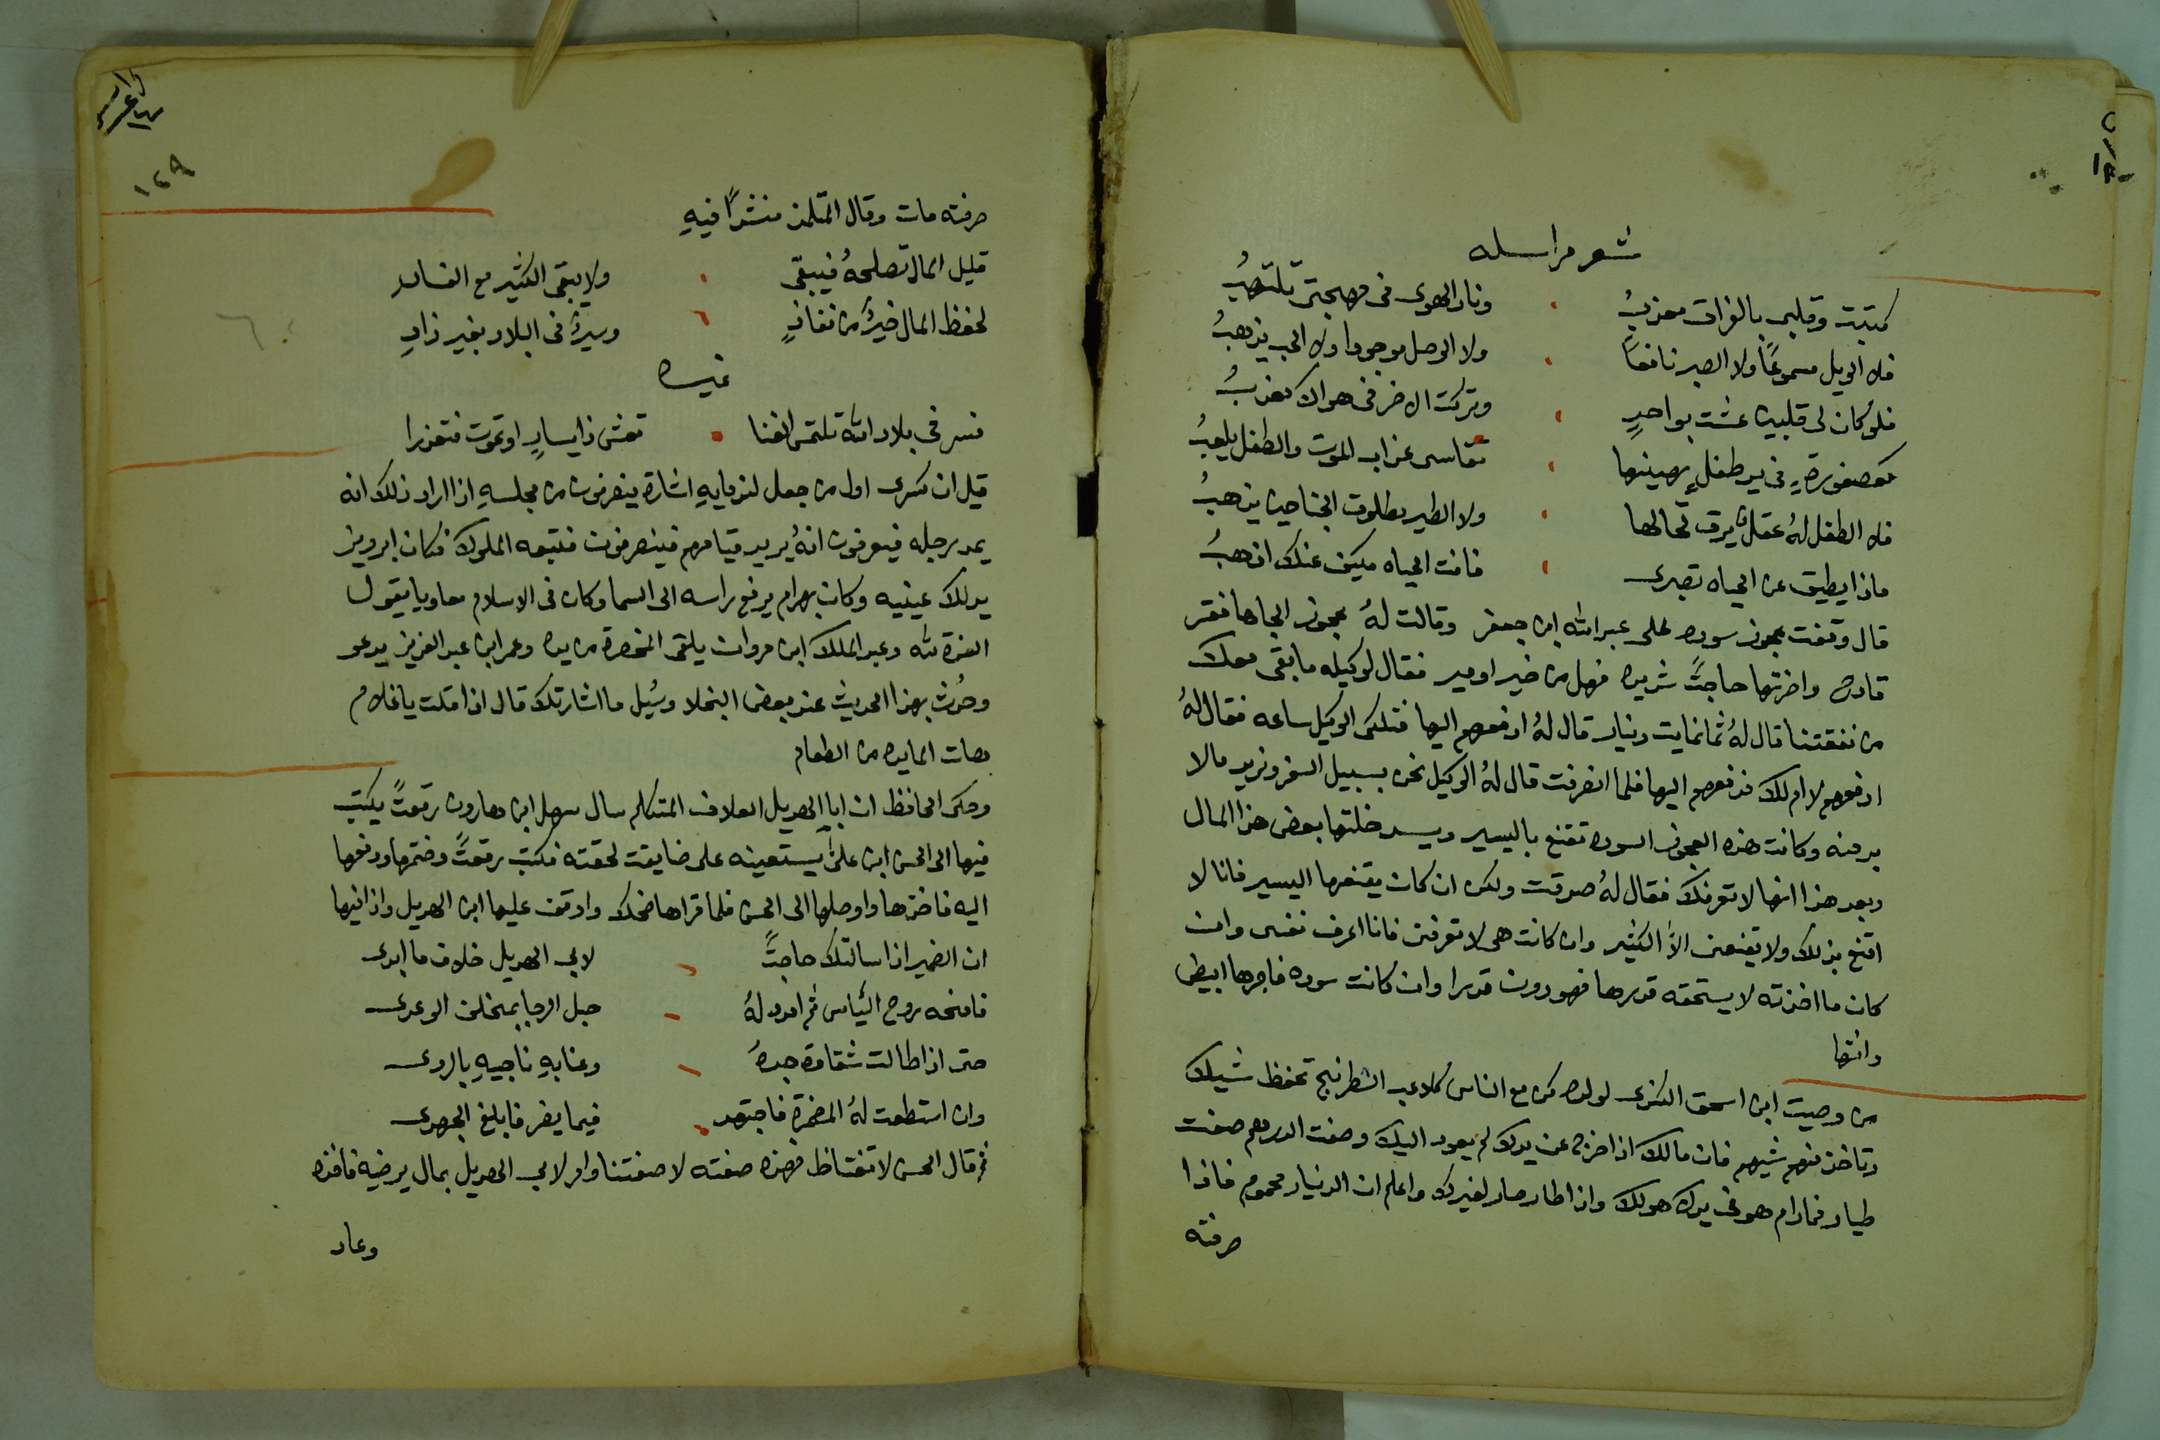 شعر مراسله
كتبت وقلبي بالفراق معذبُ ونار الهوى في مهجتي تلتهبُ
فلا الويل مسموعًا ولا الصبر نافعًا ولا الوصل موجودا ولا الحب يذهبُ
فلو كان لي قلبين عشت بواحدٍ وتركت الاخر في هواك معذبُ
كعصفورةٍ في يد طفلٍ يهينها تقاسي عذاب الموت والطفل يلعبُ
فلا الطفل لهُ عقل يرق لحالها ولا الطير مطلوق الجناحين يذهبُ
ماذا يطيق عن الحياه تصبرى فانت الحياه فكيف عنك اذهبُ
قال وقفت عجوز سوده على عبد الله ابن جعفر وقالت لهُ عجوز الجاها فقر
قادح واخذتها حاجتً شديده فهل من خير او مير فقال لوكيله ما بقى معك
من نفقتنا قال لهُ ثمانمايت دينار قال لهُ ادفعهم اليها فتلكى الوكيل ساعه فقال لهُ
ادفعهم لا ام لك فدفعهم اليها فلما انصرفت قال لهُ الوكيل نحن بسبيل السفر ونريد مالا
بد منه وكانت هذه العجوز السوده تقنع باليسير ويسد خلتها بعض هذا المال
وبعد هذا انها لا تعرفك فقال لهُ صدقت ولكن ان كان يقنعها اليسير فانا لا
اقنع بذلك ولا يقنعني الاَّ الكثير وان كانت هي لا تعرفني فانا اعرف نفسي وان
كان ما اخذته لا يستحقه قدرها فهو دون قدرا وان كانت سوده فاجرها ابيض
وانتها
من وصيت ابن اسحق الكندى لولده كن مع الناس كلاعب الشطرنج تحفظ شيك
وتاخذ منهم شيهم فان مالك اذا خرج عن يدك لم يعود اليك وصفت الدرهم صفت
طيار فما دام هو في يدك هو لك واذا طار صار لغيرك واعلم ان الدينار محموم فاذا
صرفته
١٤٩
صرفته مات وقال المتلمذ منشدًا فيهِ
قليل المال تصلحهُ فيبقى ولا يبقى الكثير مع الفساد
لحفظ المال خيرٌ من نفادٍ وسيرٌ في البلاد بغير زادِ
غيره
فسر في بلاد الله تلتمس الغنا تعش ذا يسارٍ او تموت فتعذرا
قيل ان كسرى اول من جعل لندمايهِ اشارة ينصرفون من مجلسهِ اذا اراد ذلك انه
يمد رجله فيعرفون انهُ يريد قيامهم فينصرفون فتبعه الملوك فكان ابرويز
يدلك عينيه وكان بهرام يرفع راسه الى السما وكان في الاسلام معاويا يقول
العزة لله وعبد الملك ابن مروان يلقى المخصرة من يده وعمر ابن عبد العزيز يدعو
وحُدث بهذا الحديث عند بعض البخلا وسُيل ما اشارتك قال اذا قلت يا غلام
هات المايده من الطعام
وحكى الحافظ ان ابا الهديل العلاف المتكلم سال سهل ابن هارون رقعتً يكتب
فيها الى الحسن ابن على يستعينه على ضايقت لحقته فكتب رقعتً وختمها ودفعها
اليه فاخذها واوصلها الى الحسن فلما قراها ضحك واوقف عليها ابن الهديل واذا فيها
ان الضمير اذا سالتك حاجتً لابي الهديل خلاف ما ابدى
فامنحه روح الياس ثم امدد لهُ حبل الرجا بمخلف الوعدى
حتى اذا طالت شقاوة جدهُ وعنايهِ ناجيهِ بالردى
وان استطعت لهُ المضرة فاجتهد فيما يضر فابلغ الجهدى
ثم قال الحسن لا تغتاظ فهذه صفته لا صفتنا وامر لابي الهديل بمال يرضيه فاخذه
وعاد